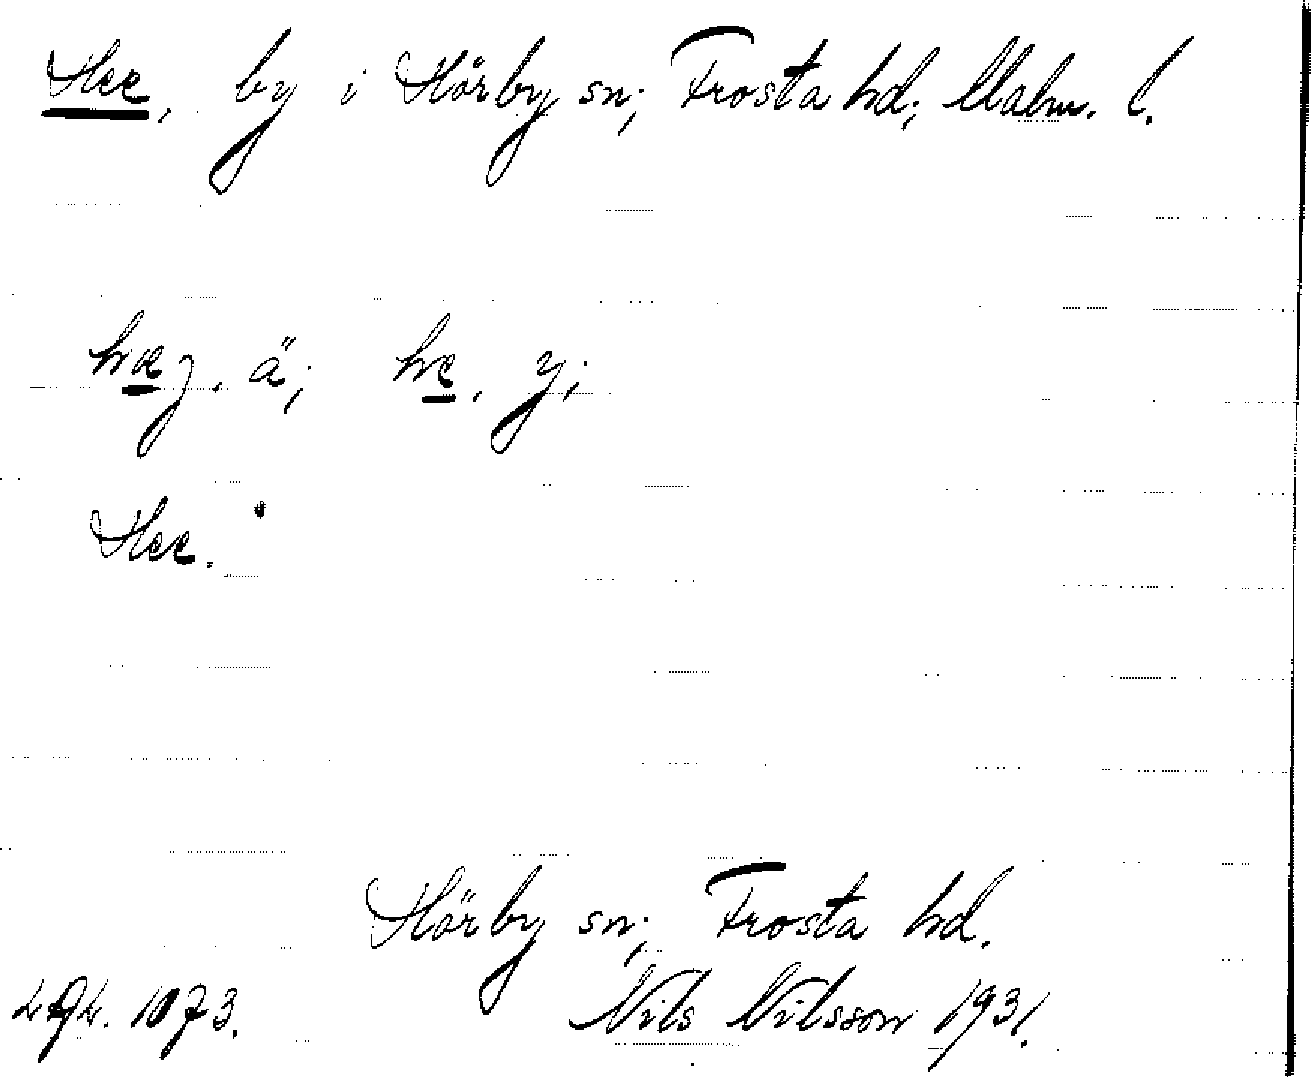 Hee, by i Hörby sn; Frosta hd; Malm. l.
hæj. ä; he, y;
Hee.
Hörby sn; Frosta hd.
1073. Nils Nilsson 1931.